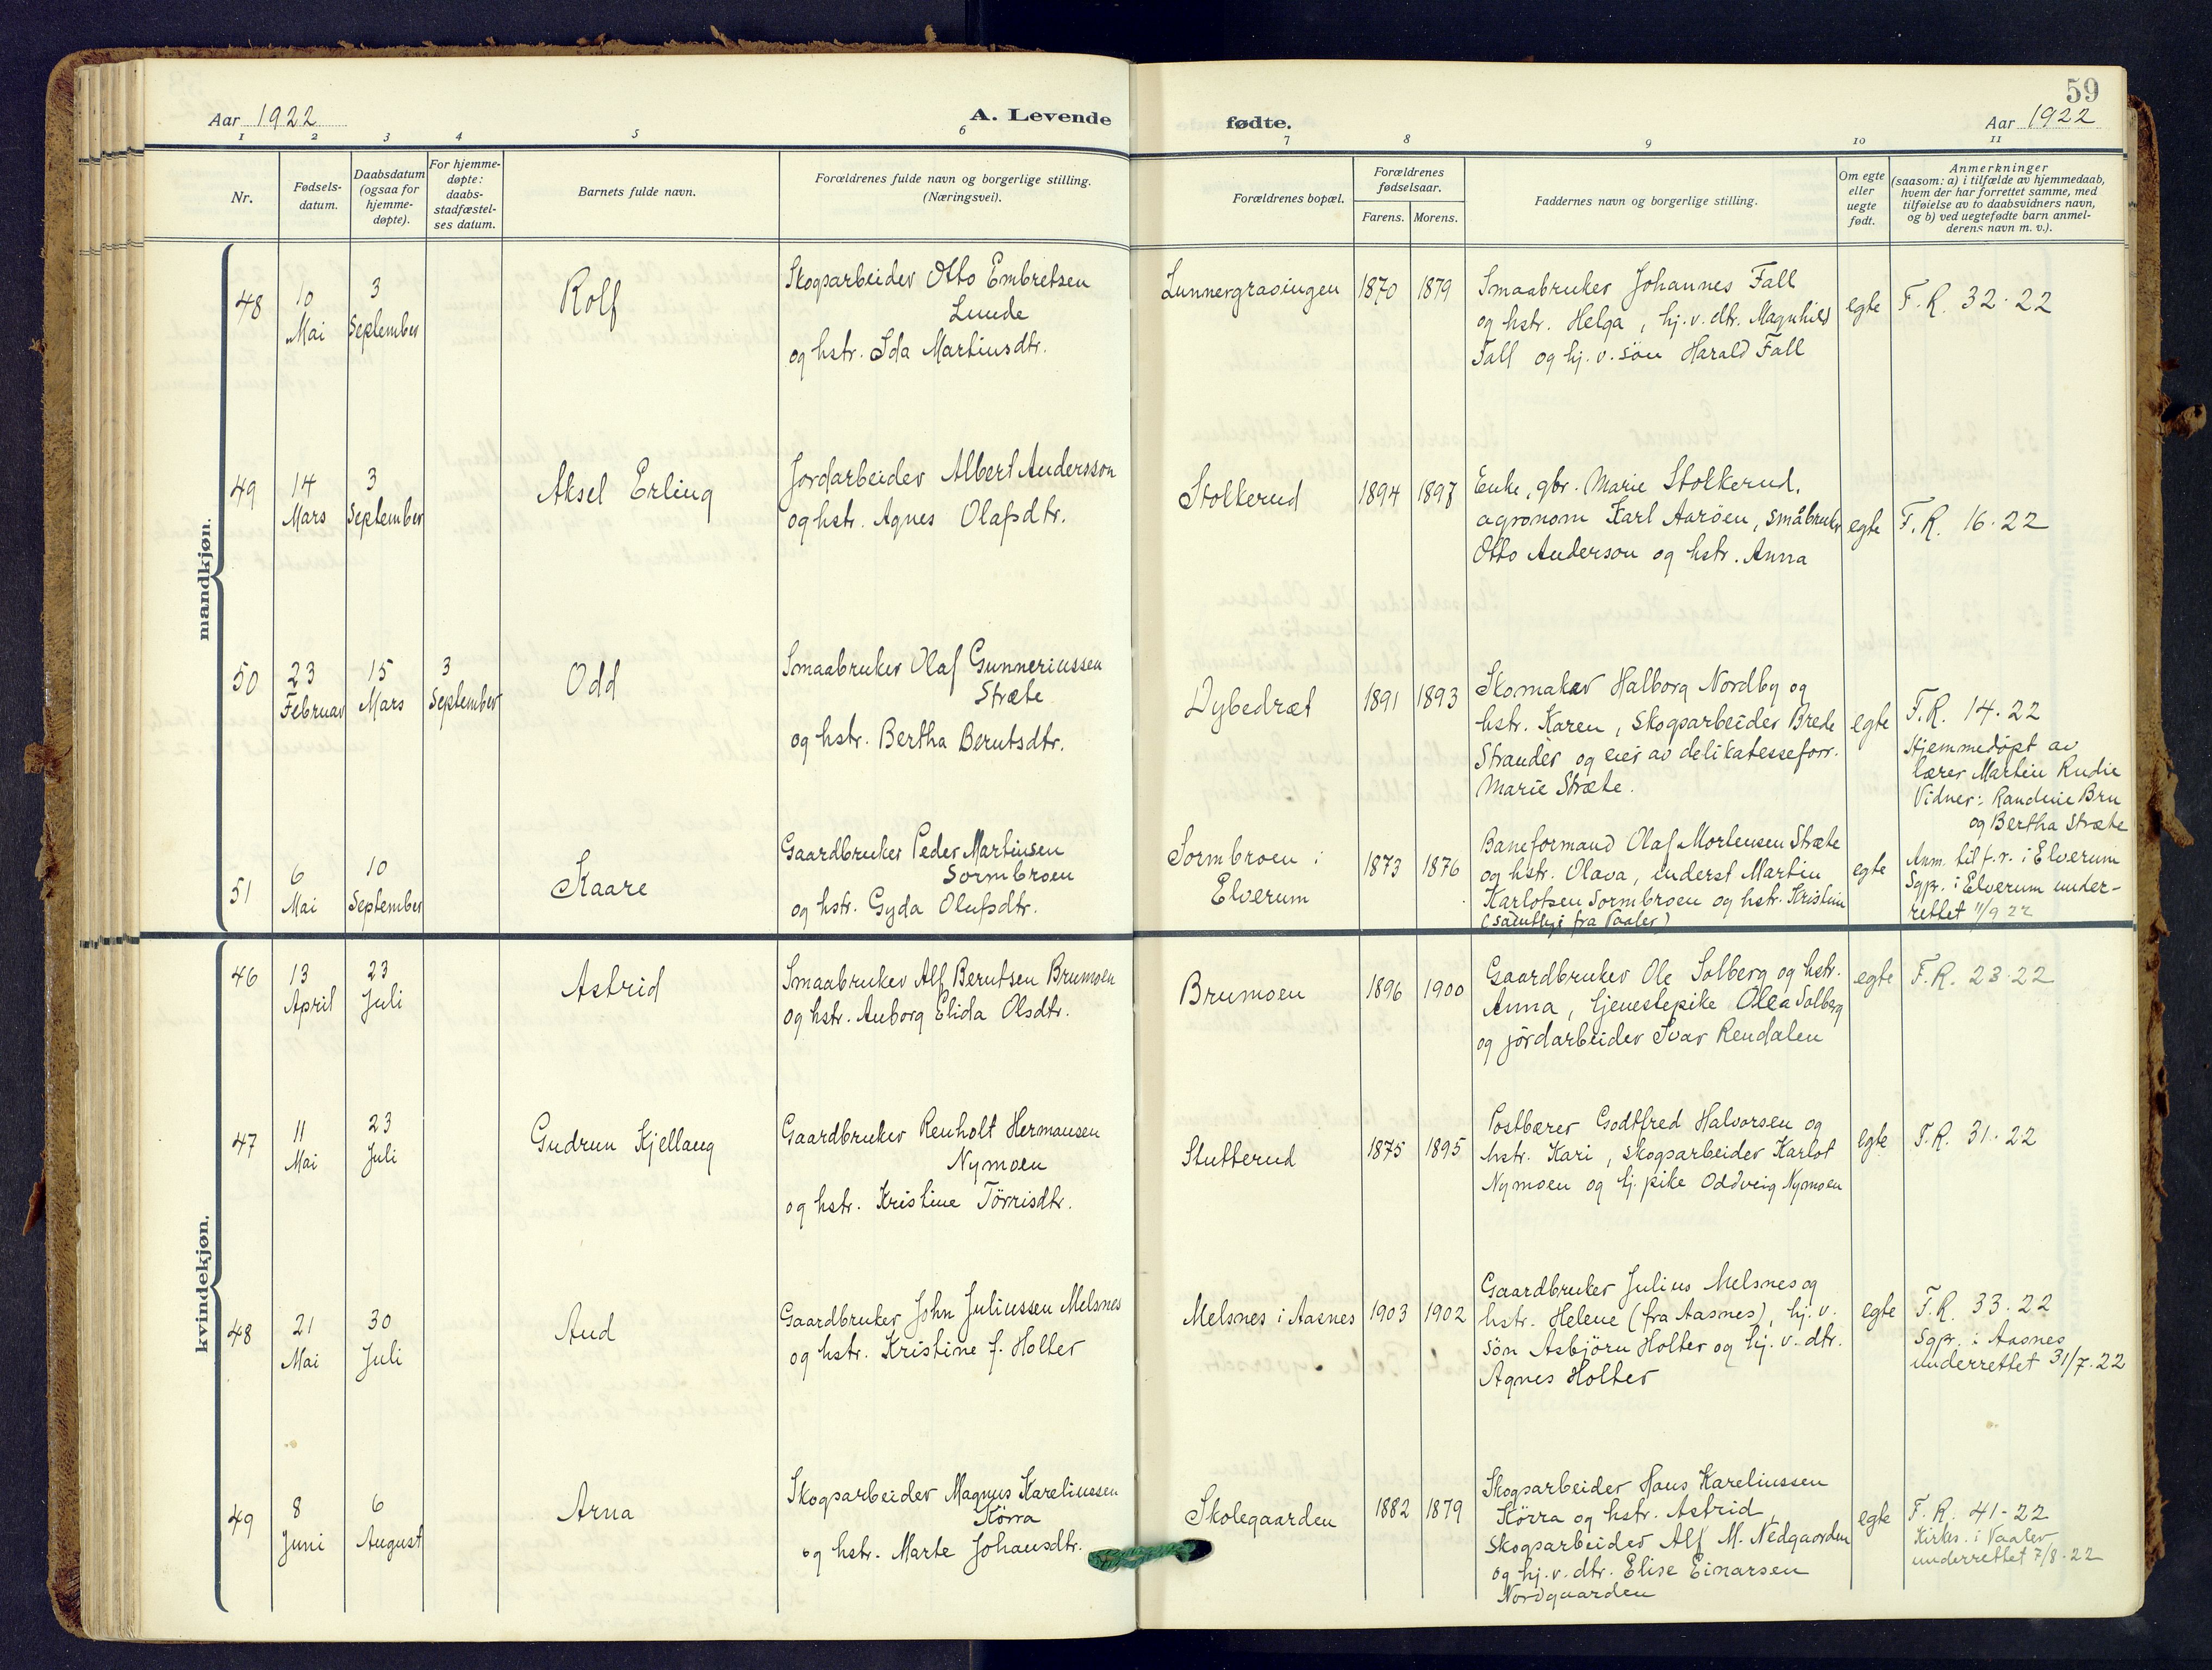 59
Aar 1922
A. Levende
fødte.
Aar 1922
1 2 3 4 5 6 7 8 9 10 11
Nr.
Fødsels-
datum.
Daabsdatum
(ogsaa for
hjemme-
døpte).
For hjemme-
døpte:
daabs-
stadfæstel-
ses datum.
Barnets fulde navn.
Forældrenes fulde navn og borgerlige stilling.
(Næringsvei).
Forældrenes bopæl.
Forældrenes
fødselsaar.
Farens. Morens.
Faddernes navn og borgerlige stilling.
Om egte
eller
uegte
født.
Anmerkninger
(saasom: a) i tilfælde av hjemmedaab,
hvem der har forrettet samme, med
tilføielse av to daabsvidners navn,
og b) ved uegtefødte barn anmel-
derens navn m. v.).
mandkjøn.
48
10
Mai
3
September
Rolf
Skogsarbeider Otto Embretsen
Lunde
og hstr. Ida Martinsdtr.
Lunnergrasingen
1870 1879
Smaabruker Johannes Fall
og hstr. Helga, hj. v. dtr. Magnhild
Fall og hj. v. søn Harald Fall
egte
F. R. 32-22
49
14
Mars
3
September
Aksel Erling
Jordarbeider Albert Andersson
og hstr. Agnes Olafsdtr.
Stolkerud
1894 1897
Enke, gbr. Marie Stolkerud,
agronom Karl Aarøen, småbruker
Otto Anderson og hstr. Anna
egte
F. R. 16-22
50
23
Februar
15
Mars
3
September
Odd
Smaabruker Olaf Gunneriussen
Stræte
og hstr. Bertha Berntsdtr.
Dybedræt
1891 1893
Skomaker Halborg Nordby og
hstr. Karen, skogsarbeider Brede
Strander og eier av delikatesseforr.
Marie Stræte.
egte
F. R. 14-22
Hjemmedøpt av
lærer Martin Rudie
Vidner: Randine Bru
og Bertha Stræte
51
6
Mai
10
September
Kaare
Gaardbruker Peder Martinsen
Sormbroen
og hstr. Gyda Olufsdtr.
Sormbroen i
Elverum
1873 1876
Baneformand Olaf Mortensen Stræte
og hstr. Olava, inderst Martin
Karlotsen Sormbroen og hstr. Kristine
(samtlige fra Vaaler)
egte
Anm. til f. r. i Elverum
Sgpr. i Elverum under-
rettet 11/9 22
kvindekjøn.
46
13
April
23
Juli
Astrid
Smaabruker Alf Berntsen Brumoen
og hstr. Anborg Elida Olsdtr.
Brumoen
1896 1900
Gaardbruker Ole Solberg og hstr.
Anna, tjenestepike Olea Solberg
og jordarbeider Ivar Rendalen
egte
F. R. 23-22
47
11
Mai
23
Juli
Gudrun Kjellaug
Gaardbruker Renholt Hermansen
Nymoen
og hstr. Kristine Tørrisdtr.
Slutterud
1875 1895
Postbærer Godtfred Halvorsen og
hstr. Kari, skogsarbeider Karlot
Nymoen og tj. pike Oddveig Nymoen
egte
F. R. 31-22
48
21
Mai
30
Juli
Aud
Gaardbruker John Juliussen Melsnes
og hstr. Kristine f. Holter
Melsnes i Aasnes
1903 1902
Gaardbruker Julius Melsnes og
hstr. Helene (fra Aasnes), hj. v.
søn Asbjørn Holter og hj. v. dtr.
Agnes Holter
egte
F. R. 33-22
Sgpr. i Aasnes
underrettet 31/7-22
49
8
Juni
6
August
Arna
Skogsarbeider Magnus Kareliussen
Kørra
og hstr. Marte Johansdtr.
Skolegaarden
1882 1879
Skogsarbeider Hans Kareliussen
Kørra og hstr. Astrid,
skogsarbeider Alf M. Nedgaarden
og hj. v. dtr. Elise Einarsen
Nordgaarden
egte
F. R. 41-22
Kirkes. i Vaaler
underrettet 7/8-22